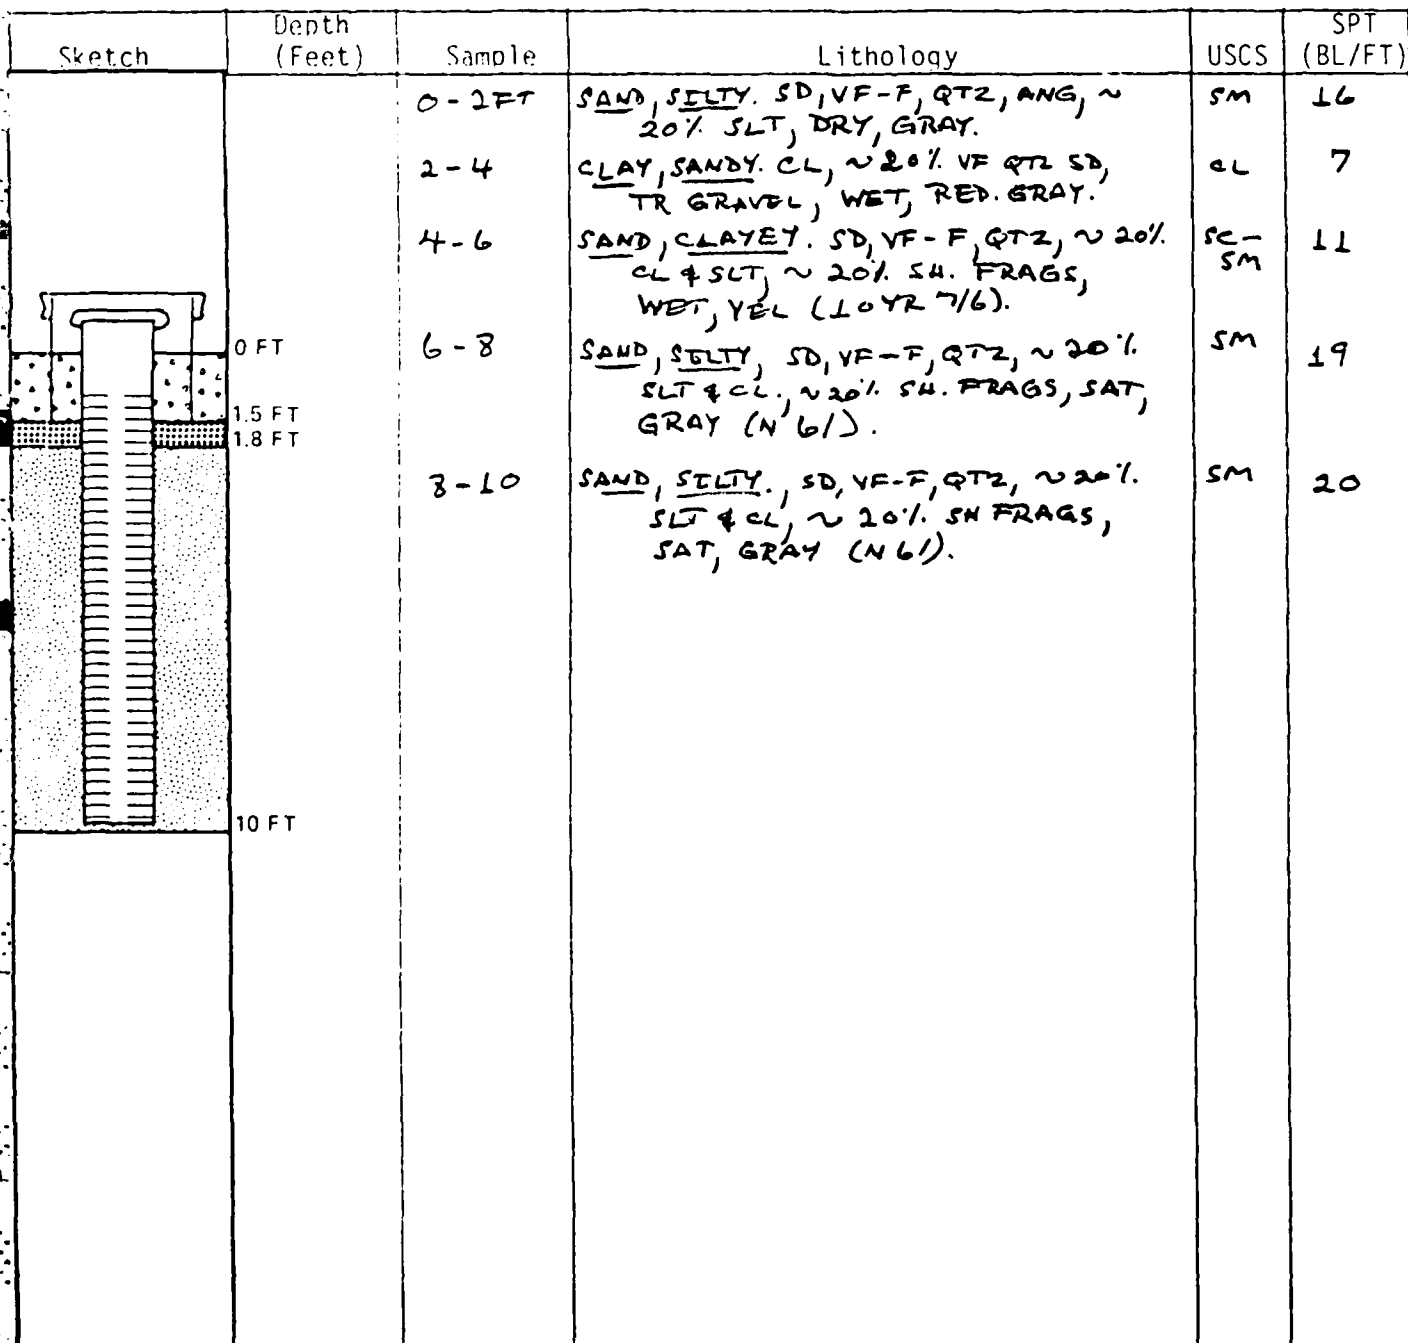 Sketch Depth (Feet) Sample Lithology USCS SPT (BL/FT)
0 - 2FT SAND, SILTY. SD, VF-F, QTZ, ANG, ~ SM 16
20% SLT, DRY, GRAY.
2 - 4 CLAY, SANDY. CL, ~20% VF QTZ SD, CL 7
TR GRAVEL, WET, RED. GRAY.
4 - 6 SAND, CLAYEY. SD, VF-F, QTZ, ~20% SC- 11
CL & SLT, ~20% SH. FRAGS, SM
WET, YEL (10YR 7/6).
0 FT
6 - 8 SAND, SILTY, SD, VF-F, QTZ, ~20% SM 19
SLT & CL., ~20% SH. FRAGS, SAT,
1.5 FT
GRAY (N 6/).
1.8 FT
8 - 10 SAND, SILTY., SD, VF-F, QTZ, ~20% SM 20
SLT & CL, ~20% SH FRAGS,
SAT, GRAY (N 6/).
10 FT